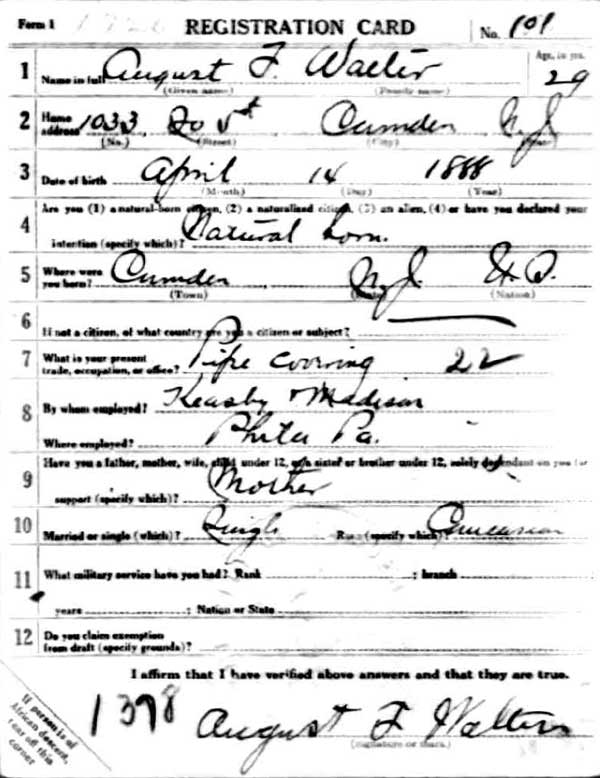 Form 1 REGISTRATION CARD No. 101
1 Name in full August F. Walter Age, in yrs. 29
(Given name) (Family name)
2 Home address 1033 So 5st Camden N.J.
(No.) (Street) (City) (State)
3 Date of birth April 14 1888
(Month) (Day) (Year)
4 Are you (1) a natural-born citizen, (2) a naturalized citizen, (3) an alien, (4) or have you declared your
intention (specify which)? Natural born.
5 Where were you born? Camden N.J. U.S.
(Town) (State) (Nation)
6 If not a citizen, of what country are you a citizen or subject?
7 What is your present trade, occupation, or office? Pipe covering 22
8 By whom employed? Keasby & Madison
Where employed? Phila Pa.
9 Have you a father, mother, wife, child under 12, or a sister or brother under 12, solely dependent on you for
support (specify which)? Mother
10 Married or single (which)? Single Race (specify which)? Caucasian
11 What military service have you had? Rank ; branch
years ; Nation or State
12 Do you claim exemption from draft (specify grounds)?
I affirm that I have verified above answers and that they are true.
1398 August F Walters
(Signature or mark)
If person is of
African descent,
tear off this
corner